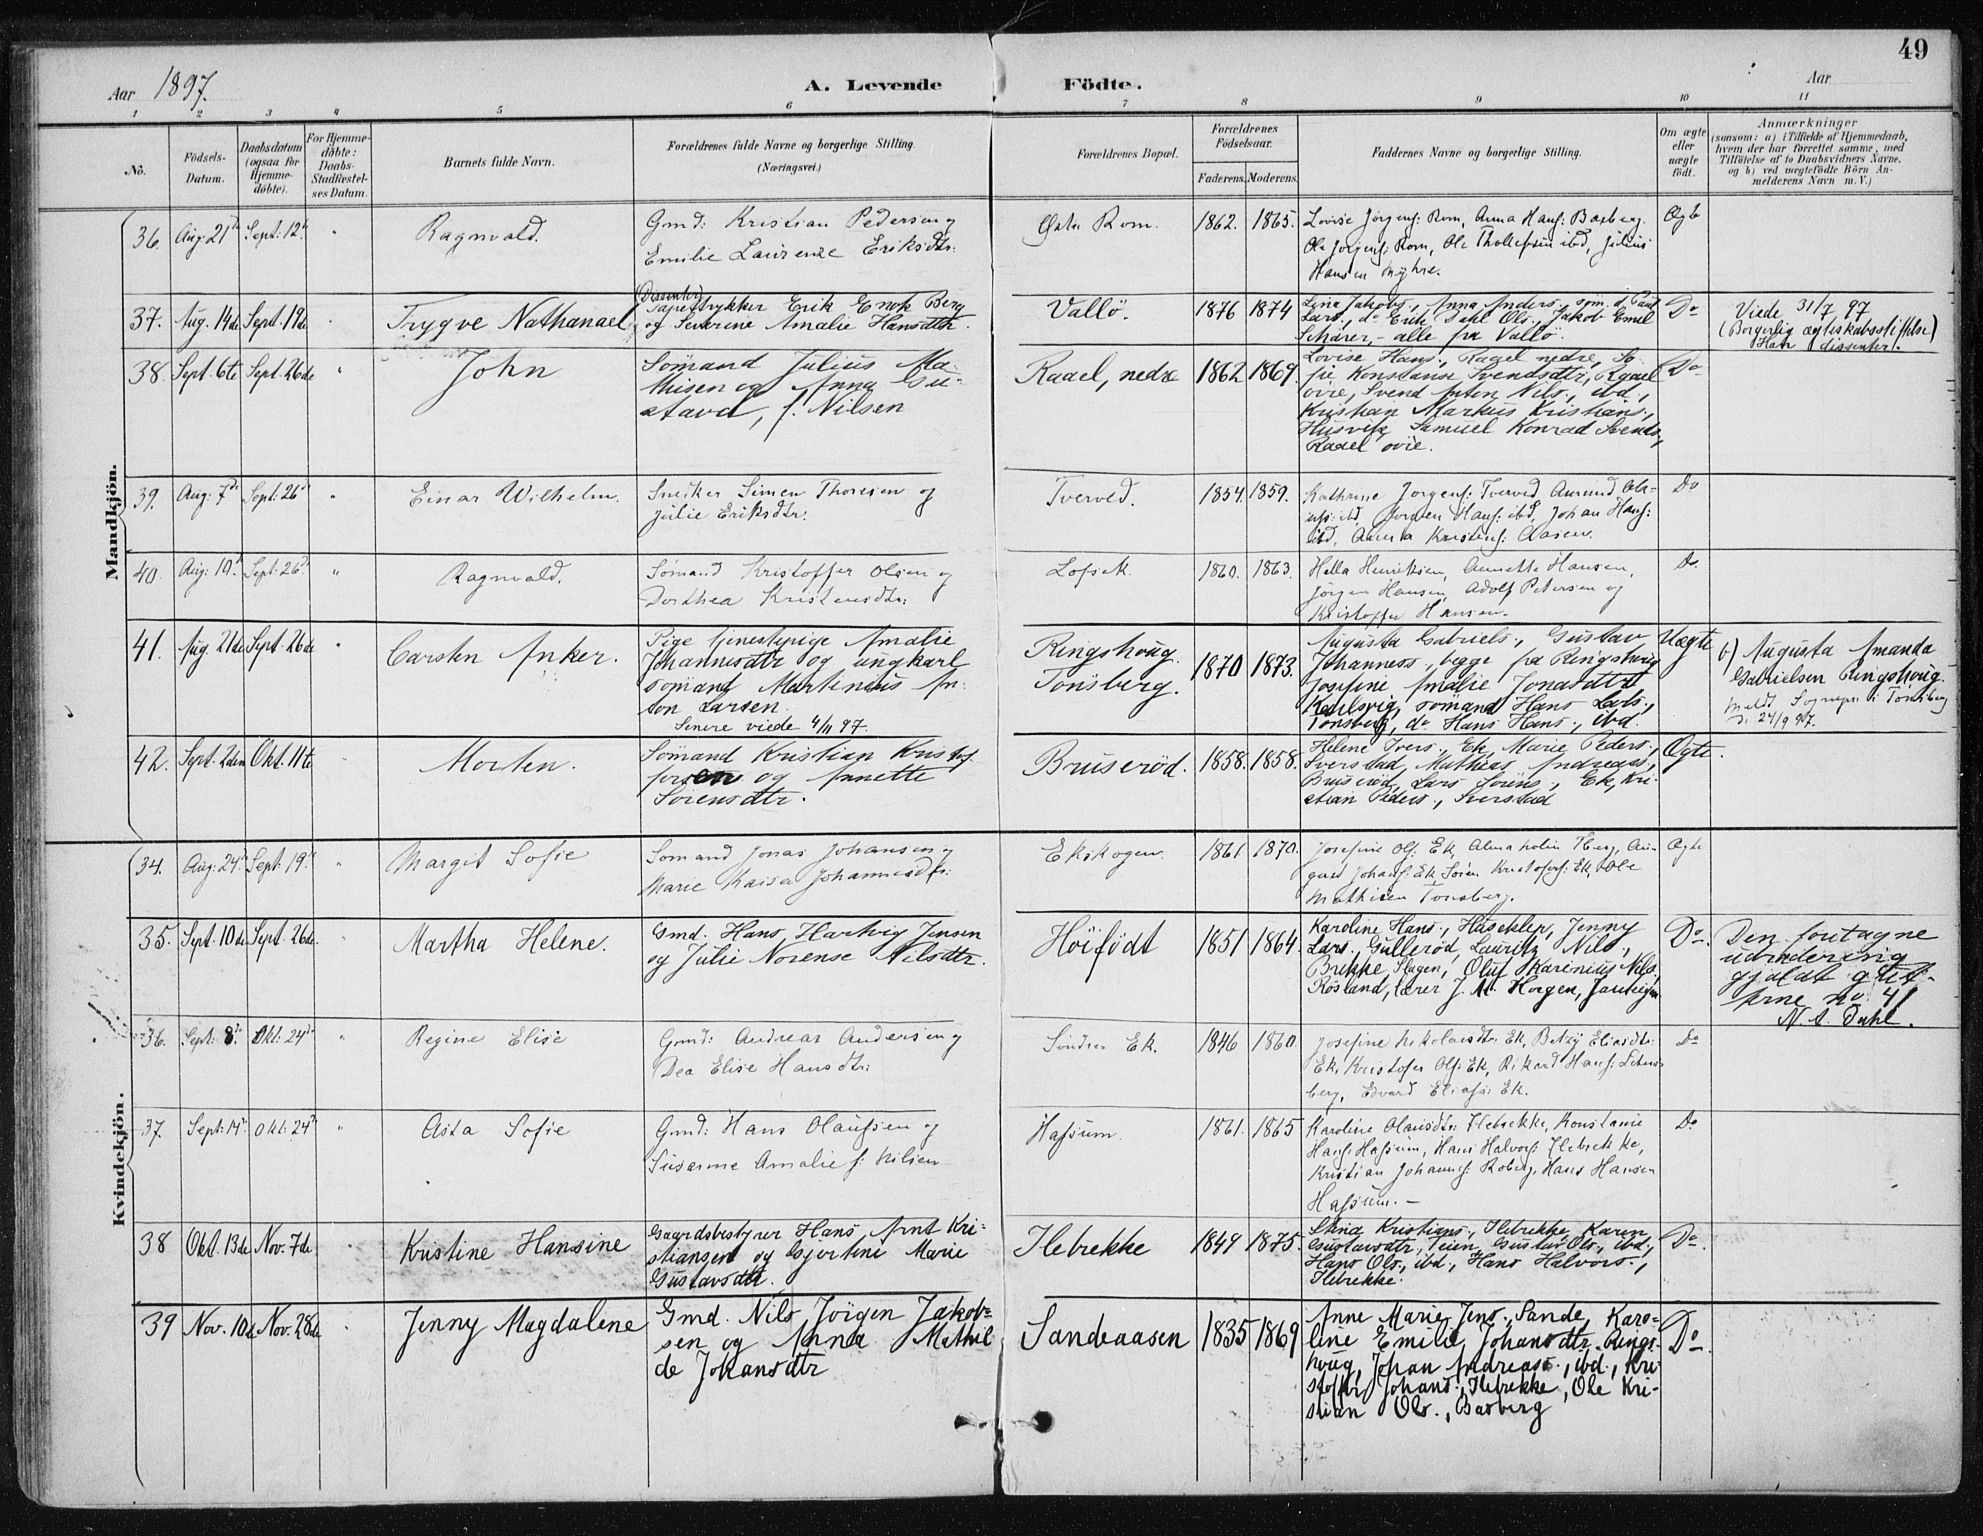 49
Aar 1897.
A. Levende Födte.
Aar
1 2 3 4 5 6 7 8 9 10 11
No.
Födsels-
Datum.
Daabsdatum
(ogsaa for
Hjemme-
döbte).
For Hjemme-
döbte:
Daabs-
Stadfæstel-
ses Datum.
Barnets fulde Navn.
Forældrenes fulde Navne og borgerlige Stilling.
(Næringsvei.)
Forældrenes Bopæl.
Forældrenes
Födselsaar.
Faderens. Moderens.
Faddernes Navne og borgerlige Stilling.
Om ægte
eller
uægte
födt.
Anmærkninger
(saasom: a) i Tilfælde af Hjemmedaab,
hvem der har forrettet samme, med
Tilföielse af to Daabsvidners Navne,
og b) ved uægtefödte Börn An-
melderens Navn m. V.)
Mandkjön.
36. Aug: 21 Sept: 12 " Ragnvald.
Gmd: Kristian Pedersen og
Emilie Laurense Eriksdtr:
Rom. 1862. 1865.
Lovise Jörgens: Rom, Anna Hans: Basberg.
Ole Jörgens: Rom, Ole Thollefsen ibd, Julius
Hansen Myhre.
37. Aug. 14de Sept. 19de " Trygve Nathanael
(Dissenter)
Tapettrykker Erik Enok Berg
og Severine Amalie Hansdtr.
Vallö. 1876 1874
Lina Jakobs., Anna Anders., söm. d. Paul
Lars., do Erik Dahl Ols., Jakob Emil
Schärer, - alle fra Vallö.
Do
Viede 31/7 97
(Borgerlig ægteskabsstiftelse)
Han dissenter.
38. Sept. 6te Sept. 26de " John
Sömand Julius Ma-
thisen og Anna Gu-
stava, f. Nilsen
Raael, nedre 1862 1869.
Lovise Hans., Raael nedre, So-
fie Konstanse Svendsdtr, Raael
övre, Svend Anton Nils., ibd.,
Kristian Markus Kristians.,
Husvik, Samuel Konrad Svends.,
Raael övre.
Do
39. Aug: 7 Sept: 26 " Einar Wilhelm.
Snecker Simen Thoresen og
Julie Eriksdtr.
Tverved. 1854. 1859.
Kathrine Jörgens: Tverved,
ibd, Jörgen Hans: ibd, Johan Hans:
ibd, Anna Kristins: Aasen.
Do
40. Aug: 10 Sept: 26 " Ragnvald.
Sömand Kristoffer Olsen og
Dorthea Kristensdtr:
1860. 1863.
Helle Henriksen, Annette Hansen,
Jörgen Hansen, Adolf Petersen og
Kristoffer Hansen.
Do
41. Aug. 21de Sept. 26de " Carsten Anker.
Pige tjenestepige Amalie
Johannesdtr og ungkarl
sömand Martinius An-
ton Larsen.
Senere viede 4/11 97.
Ringshoug.
Tönsberg.
1870 1873.
Augusta Gabriels., Gustav
Johanness., begge fra Ringshoug,
Josefine Amalie Jonasdtr
Karlsvig, sömand Hans Lars.,
Tönsberg, do Hans Hans., ibd.
Uægte
b) Augusta Amanda
Gabrielsen Ringshoug.
Meldt Sognepr. i Tönsberg
d. 24/9 97.
42. Sept. 2den Okt. 11te Morten.
Sömand Kristian Kristof-
fersen og Annette
Sörensdtr.
Bruseröd. 1858. 1858.
Helene Ivers., Ek, Marie Peders.,
Sverstad, Mathias Andreass.,
Bruseröd, Lars Sörens., Ek, Kri-
stian Peders., Sverstad
Ægte.
Kvindekjön.
34. Aug: 24 Sept: 19 " Margit Sofie
Sömand Jonas Johansen og
Marie Kaisa Johannesdtr:
Ekskogen 1861 1870.
Josefine Ols: Ek,
Johans: Ek, Sören Kristofers: Ek, Ole
Mathisen Tönsberg.
Ægte
35. Sept. 10de Sept. 26de. Martha Helene.
Gmd. Hans Hartvig Jensen
og Julie Norense Nilsdtr.
Höifödt 1851 1864.
Karoline Hans., Haseklep, Jenny
Lars., Gulleröd, Lauritz Nils.,
Brekke, Slagen, Oluf Karenius Nils.,
Rösland, lærer J. M. Horgen,
Do.
Den foretagne
udradering
gjaldt gut-
terne no 41
N. A. Dahl.
36. Sept: 8. Okt: 24 " Regine Elise
Gmd: Andreas Andersen og
Dea Elise Hansdtr:
Söndre Ek. 1846 1860
Josefine Nikolaisdtr: Ek, Betzy Eliasdtr:
Ek, Kristofer Ols: Ek, Rikard Hans:
berg, Edvard Elias: Ek.
Do
37. Sept: 14 Okt: 24 " Asta Sofie
Gmd: Hans Olaussen og
Susanne Amalie f: Nilsen
Hassum. 1861. 1865
Karoline Olausdtr: Ilebrekke, Konstanse
Hans: Hassum, Hans Halvors: Ilebrekke,
Kristian Johanns: Roberg, Hans Hansen
Hassum. -
Do
38 Okt. 13de Nov. 7de Kristine Hansine
Gaardsbestyrer Hans Arnt Kri-
stiansen og Gjertine Marie
Gustavsdtr.
Ilebrekke 1849 1875.
Stina Kristians., Ilebrekke, Karen
Gustavsdtr, Teien, Gustav Ols., ibd.,
Hans Ols., ibd., Hans Halvors.,
Ilebrekke.
Do.
39 Nov. 10de Nov. 28de Jenny Magdalene
Gmd. Nils Jörgen Jakob-
sen og Anna Mathil-
de Johansdtr
Sandeaasen 1835 1869
Anne Marie Jens., Sande, Karo-
line Emilie Johansdtr, Rings-
houg, Johan Andreass., ibd., Kri-
stoffer Johans., Ilebrekke, Ole Kri-
stian Ols., Basberg
Do.